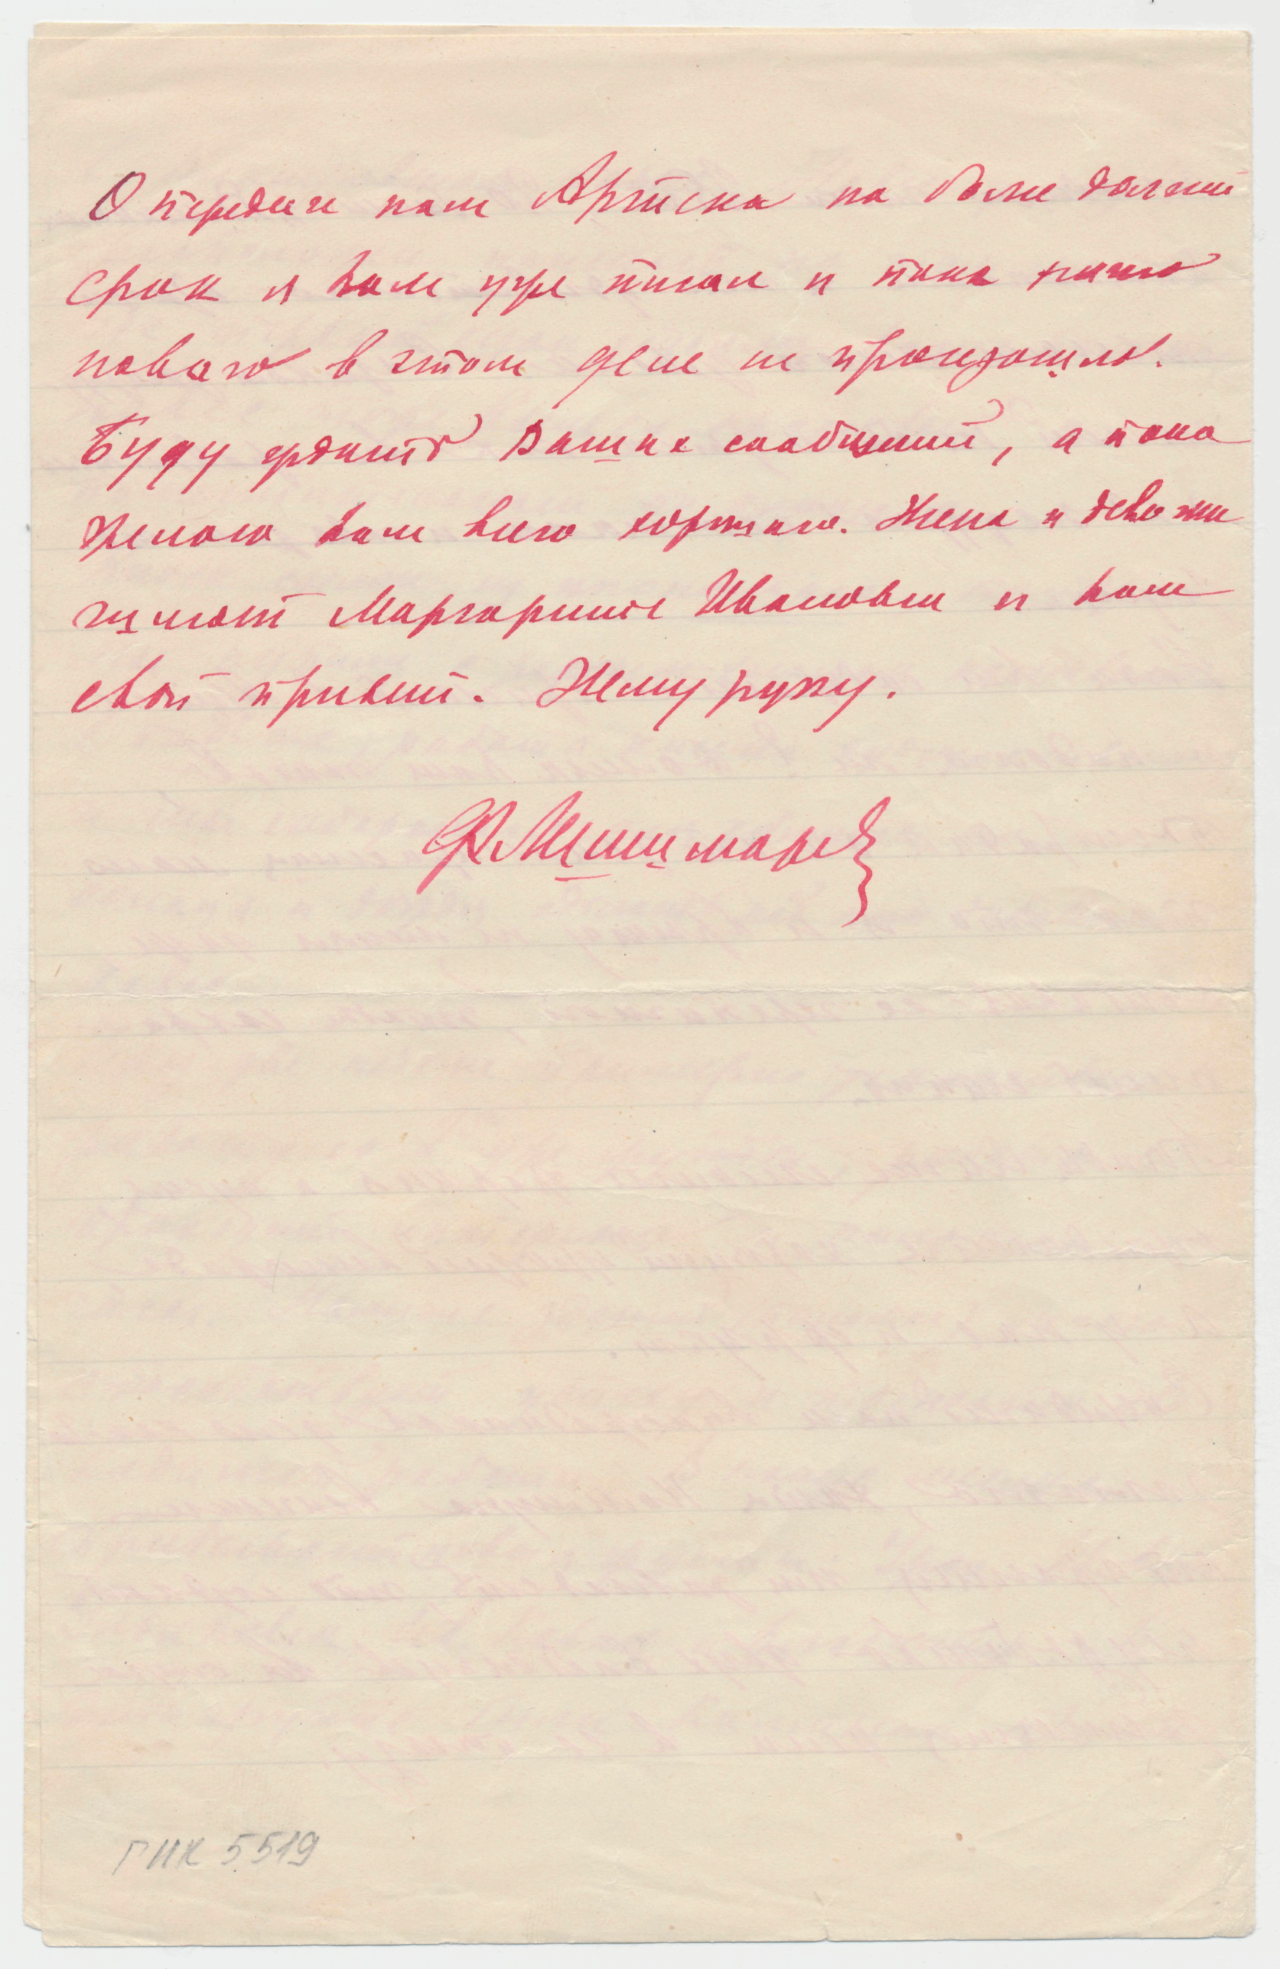 О передаче нам Артека на более долгий
срок я Вам уже писал и пока ничего
нового в этом деле не произошло.
Буду ждать Ваших сообщений, а пока
желаю Вам всего хорошего. Жена и девочки
шлют Маргарите Ивановне и Вам
свой привет. Жму руку.
Ф. Шишмарев
ГИК 5519